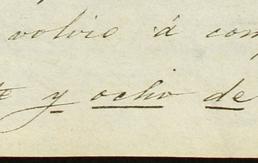 volvio á com
y ocho de